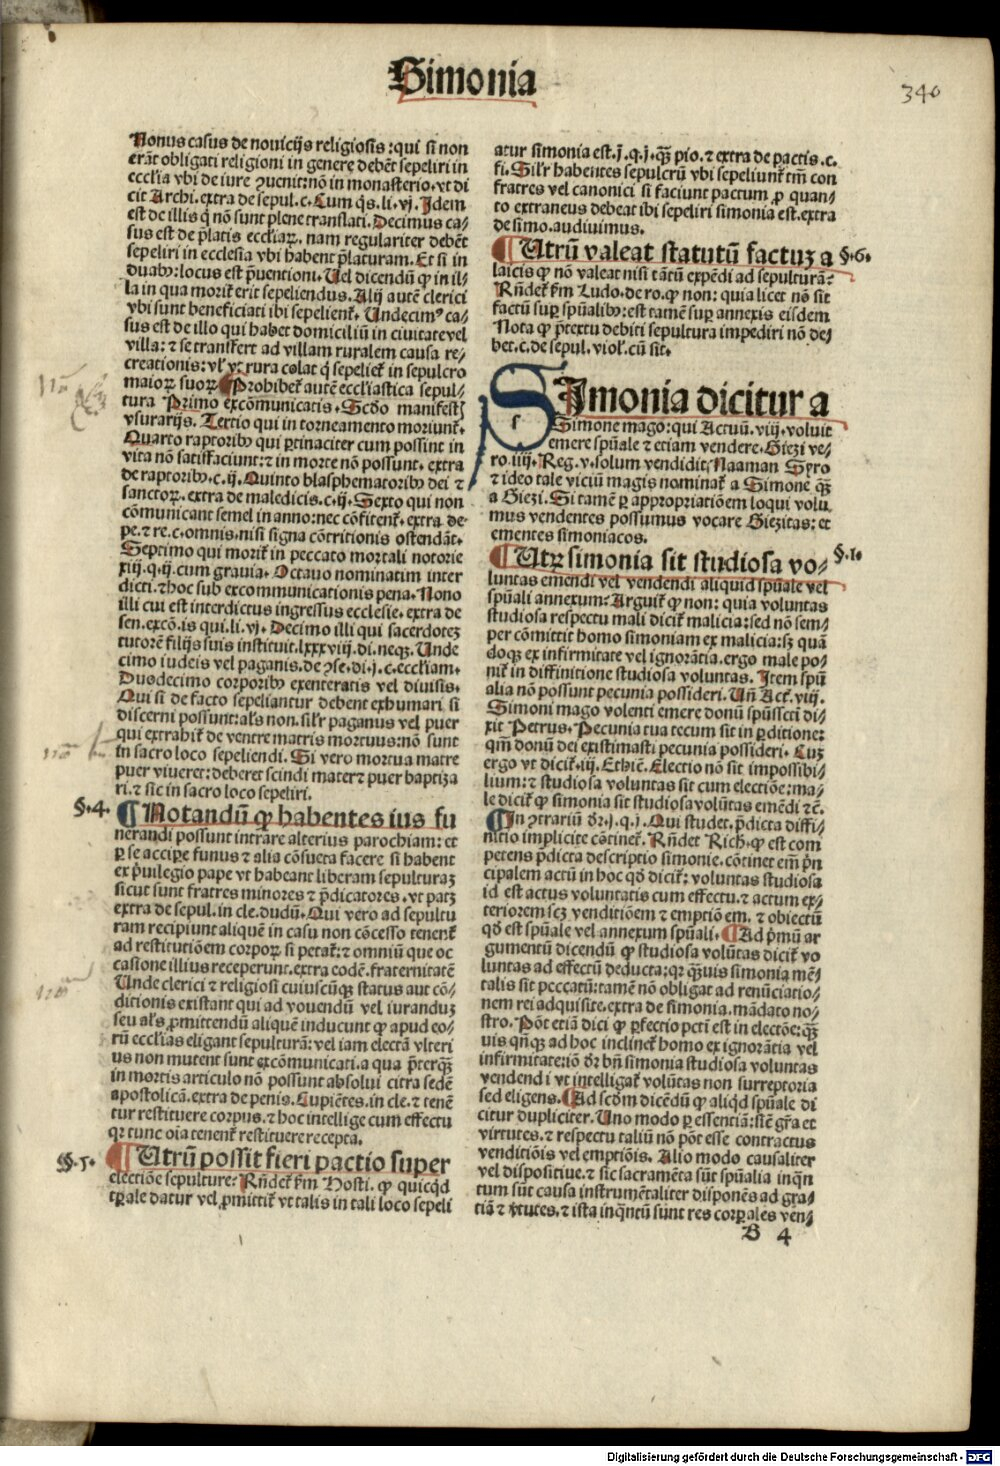 Simonia
340
Nonus casus de nouicijs religiosis: qui si non
erāt obligati religioni in genere debēt sepeliri in
eccl'ia vbi de iure ꝯuenit: nō in monasterio. vt di
cit Archi. extra de sepul. c. Cum q̄s. li. vj. Idem
est de illis q̄ nō sunt plene translati. Decimus ca-
sus est de p̄latis eccl'iaꝝ. nam regulariter debēt
sepeliri in ecclesia vbi habent p̄laturam. Et si in
duabꝰ: locus est p̄uentioni. Uel dicendū ꝙ in il-
la in qua morit̄ erit sepeliendus. Alij autē clerici
vbi sunt beneficiati ibi sepelient̄. Undecimꝰ ca-
sus est de illo qui habet domiciliū in ciuitate vel
villa: ⁊ se transfert ad villam ruralem causa re-
creationis: vl' vt rura colat q̄ sepeliet̄ in sepulcro
maioꝝ suoꝝ ¶ Prohibet̄ autē eccl'iastica sepul-
tura Primo excōmunicatis. Scdo manifest̄
vsurarijs. Tertio qui in torneamento moriunt̄.
Quarto raptoribꝰ qui ꝑtinaciter cum possint in
vita nō satisfaciunt: ⁊ in morte nō possunt. extra
de raptoribꝰ. c. ij. Quinto blasphematoribꝰ dei ⁊
sanctoꝝ. extra de maledicis. c. ij. Sexto qui non
cōmunicant semel in anno: nec cōfitent̄. extra de
pe. ⁊ re. c. omnis. nisi signa cōtritionis ostendāt.
Septimo qui morit̄ in peccato mortali notorie
xiij. q. ij. cum grauia. Octauo nominatim inter
dicti. ⁊ hoc sub excommunicationis pena. Nono
illi cui est interdictus ingressus ecclesie. extra de
sen. excō. is qui. li. vj. Decimo illi qui sacerdotez
tutorē filijs suis instituit. lxxxviij. di. neqꝫ. Unde
cimo iudeis vel paganis. de ꝯse. di. j. c. eccl'iam.
Duodecimo corporibꝰ exenteratis vel diuisis.
Qui si de facto sepeliantur debent exhumari si
discerni possunt: al's non. sil'r paganus vel puer
qui extrahit̄ de ventre matris mortuus: nō sunt
in sacro loco sepeliendi. Si vero mortua matre
puer viueret: deberet scindi mater ⁊ puer baptiza
ri. ⁊ sic in sacro loco sepeliri.
§.4. ¶ Notandū ꝙ habentes ius fu
nerandi possunt intrare alterius parochiam: et
ꝑ se accipe funus ⁊ alia cōsueta facere si habent
ex p̄uilegio pape vt habeant liberam sepulturaꝫ
sicut sunt fratres minores ⁊ p̄dicatores. vt patꝫ
extra de sepul. in cle. dudū. Qui vero ad sepultu
ram recipiunt aliquē in casu non cōcesso tenent̄
ad restitutiōem corporꝫ si petat̄: ⁊ omniū que oc
casione illius receperunt. extra eodē. fraternitatē
Unde clerici ⁊ religiosi cuiuscūqꝫ status aut cō-
ditionis existant qui ad vouendū vel iuranduꝫ
seu al's ꝓmittendū aliquē inducunt ꝙ apud eo-
rū eccl'ias eligant sepulturā: vel iam electā vlteri
us non mutent sunt excōmunicati. a qua p̄terqꝫ
in mortis articulo nō possunt absolui citra sedē
apostolicā. extra de penis. Cupiētes. in cle. ⁊ tenē
tur restituere corpus. ⁊ hoc intellige cum effectu
qꝛ tunc oīa tenent̄ restituere recepta.
§.5. ¶ Utrū possit fieri pactio super
electiōe sepulture? Rn̄det fm Hosti. ꝙ quicqd
tꝑale datur vel ꝓmittit̄ vt talis in tali loco sepeli
atur simonia est. j. q. j. qꝫ pio. ⁊ extra de pactis. c.
fi. Sil'r habentes sepulcrū vbi sepeliunt̄ tm̄ con
fratres vel canonici si faciunt pactum ꝓ quan-
to extraneus debeat ibi sepeliri simonia est. extra
de simo. audiuimus.
¶ Utrū valeat statutū factuꝫ a §.6.
laicis ꝙ nō valeat nisi tātū expēdi ad sepulturā?
Rn̄det fm Ludo. de ro. ꝙ non: quia licet nō sit
factū suꝑ spūalibꝰ: est tamē suꝑ annexis eisdem
Nota ꝙ p̄textu debiti sepultura impediri nō de-
bet. c. de sepul. viol'. cū sit.
SImonia dicitur a
Simone mago: qui Actuū. viij. voluit
emere spūale ⁊ etiam vendere. Giezi ve-
ro. iiij. Reg. v. solum vendidit Naaman Syro
⁊ ideo tale viciū magis nominat̄ a Simone qꝫ
a Giezi. Si tamē ꝑ appropriatiōem loqui volu
mus vendentes possumus vocare Giezitas: et
ementes simoniacos.
¶ Utꝝ simonia sit studiosa vo- §.1.
luntas emendi vel vendendi aliquid spūale vel
spūali annexum? Arguit̄ ꝙ non: quia voluntas
studiosa respectu mali dicit̄ malicia: sed nō sem-
per cōmittit homo simoniam ex malicia: sꝫ quā
doqꝫ ex infirmitate vel ignorātia. ergo male po-
nit̄ in diffinitione studiosa voluntas. Item spū
alia nō possunt pecunia possideri. Un̄ Act̄. viij.
Simoni mago volenti emere donū spūssctī di-
xit Petrus. Pecunia tua tecum sit in ꝑditione:
qm̄ donū dei existimasti pecunia possideri. Cuꝫ
ergo vt dicit̄. iij. Ethic̄. Electio nō sit impossibi-
lium: ⁊ studiosa voluntas sit cum electiōe: ma-
le dicit̄ ꝙ simonia sit studiosa volūtas emēdi ⁊c̄.
¶ In ꝯtrariū dr̄. j. q. j. Qui studet. p̄dicta diffi-
nitio implicite cōtinet̄. Rn̄det Rich. ꝙ est com
petens p̄dicta descriptio simonie. cōtinet em̄ p̄n
cipalem actū in hoc qd̄ dicit̄: voluntas studiosa
id est actus voluntatis cum effectu. ⁊ actum ex-
teriorem scꝫ venditiōem ⁊ emptiōem. ⁊ obiectū
qd̄ est spūale vel annexum spūali. ¶ Ad p̄mū ar
gumentū dicendū ꝙ studiosa volūtas dicit̄ vo
luntas ad effectū deducta: qꝛ qꝫuis simonia mē-
talis sit peccatū: tamē nō obligat ad renūciatio-
nem rei adquisite. extra de simonia. mādato no-
stro. Pōt etiā dici ꝙ ꝑfectio pctī est in electōe: qꝫ
uis qn̄qꝫ ad hoc inclinet̄ homo ex ignorātia vel
infirmitate: iō dr̄ bn̄ simonia studiosa voluntas
vendendi vt intelligat̄ volūtas non surreptoria
sed eligens. ¶ Ad scdm dicēdū ꝙ aliqd spūale di
citur dupliciter. Uno modo ꝑ essentiā: sic̄ gr̄a et
virtutes. ⁊ respectu taliū nō pōt esse contractus
venditiōis vel emptiōis. Alio modo causaliter
vel dispositiue. ⁊ sic sacramēta sūt spūalia inqn̄
tum sūt causa instrumētaliter disponēs ad gra-
tiā ⁊ v̄tutes. ⁊ ista inqn̄tū sunt res corꝑales ven-
B 4
Digitalisierung gefördert durch die Deutsche Forschungsgemeinschaft - DFG